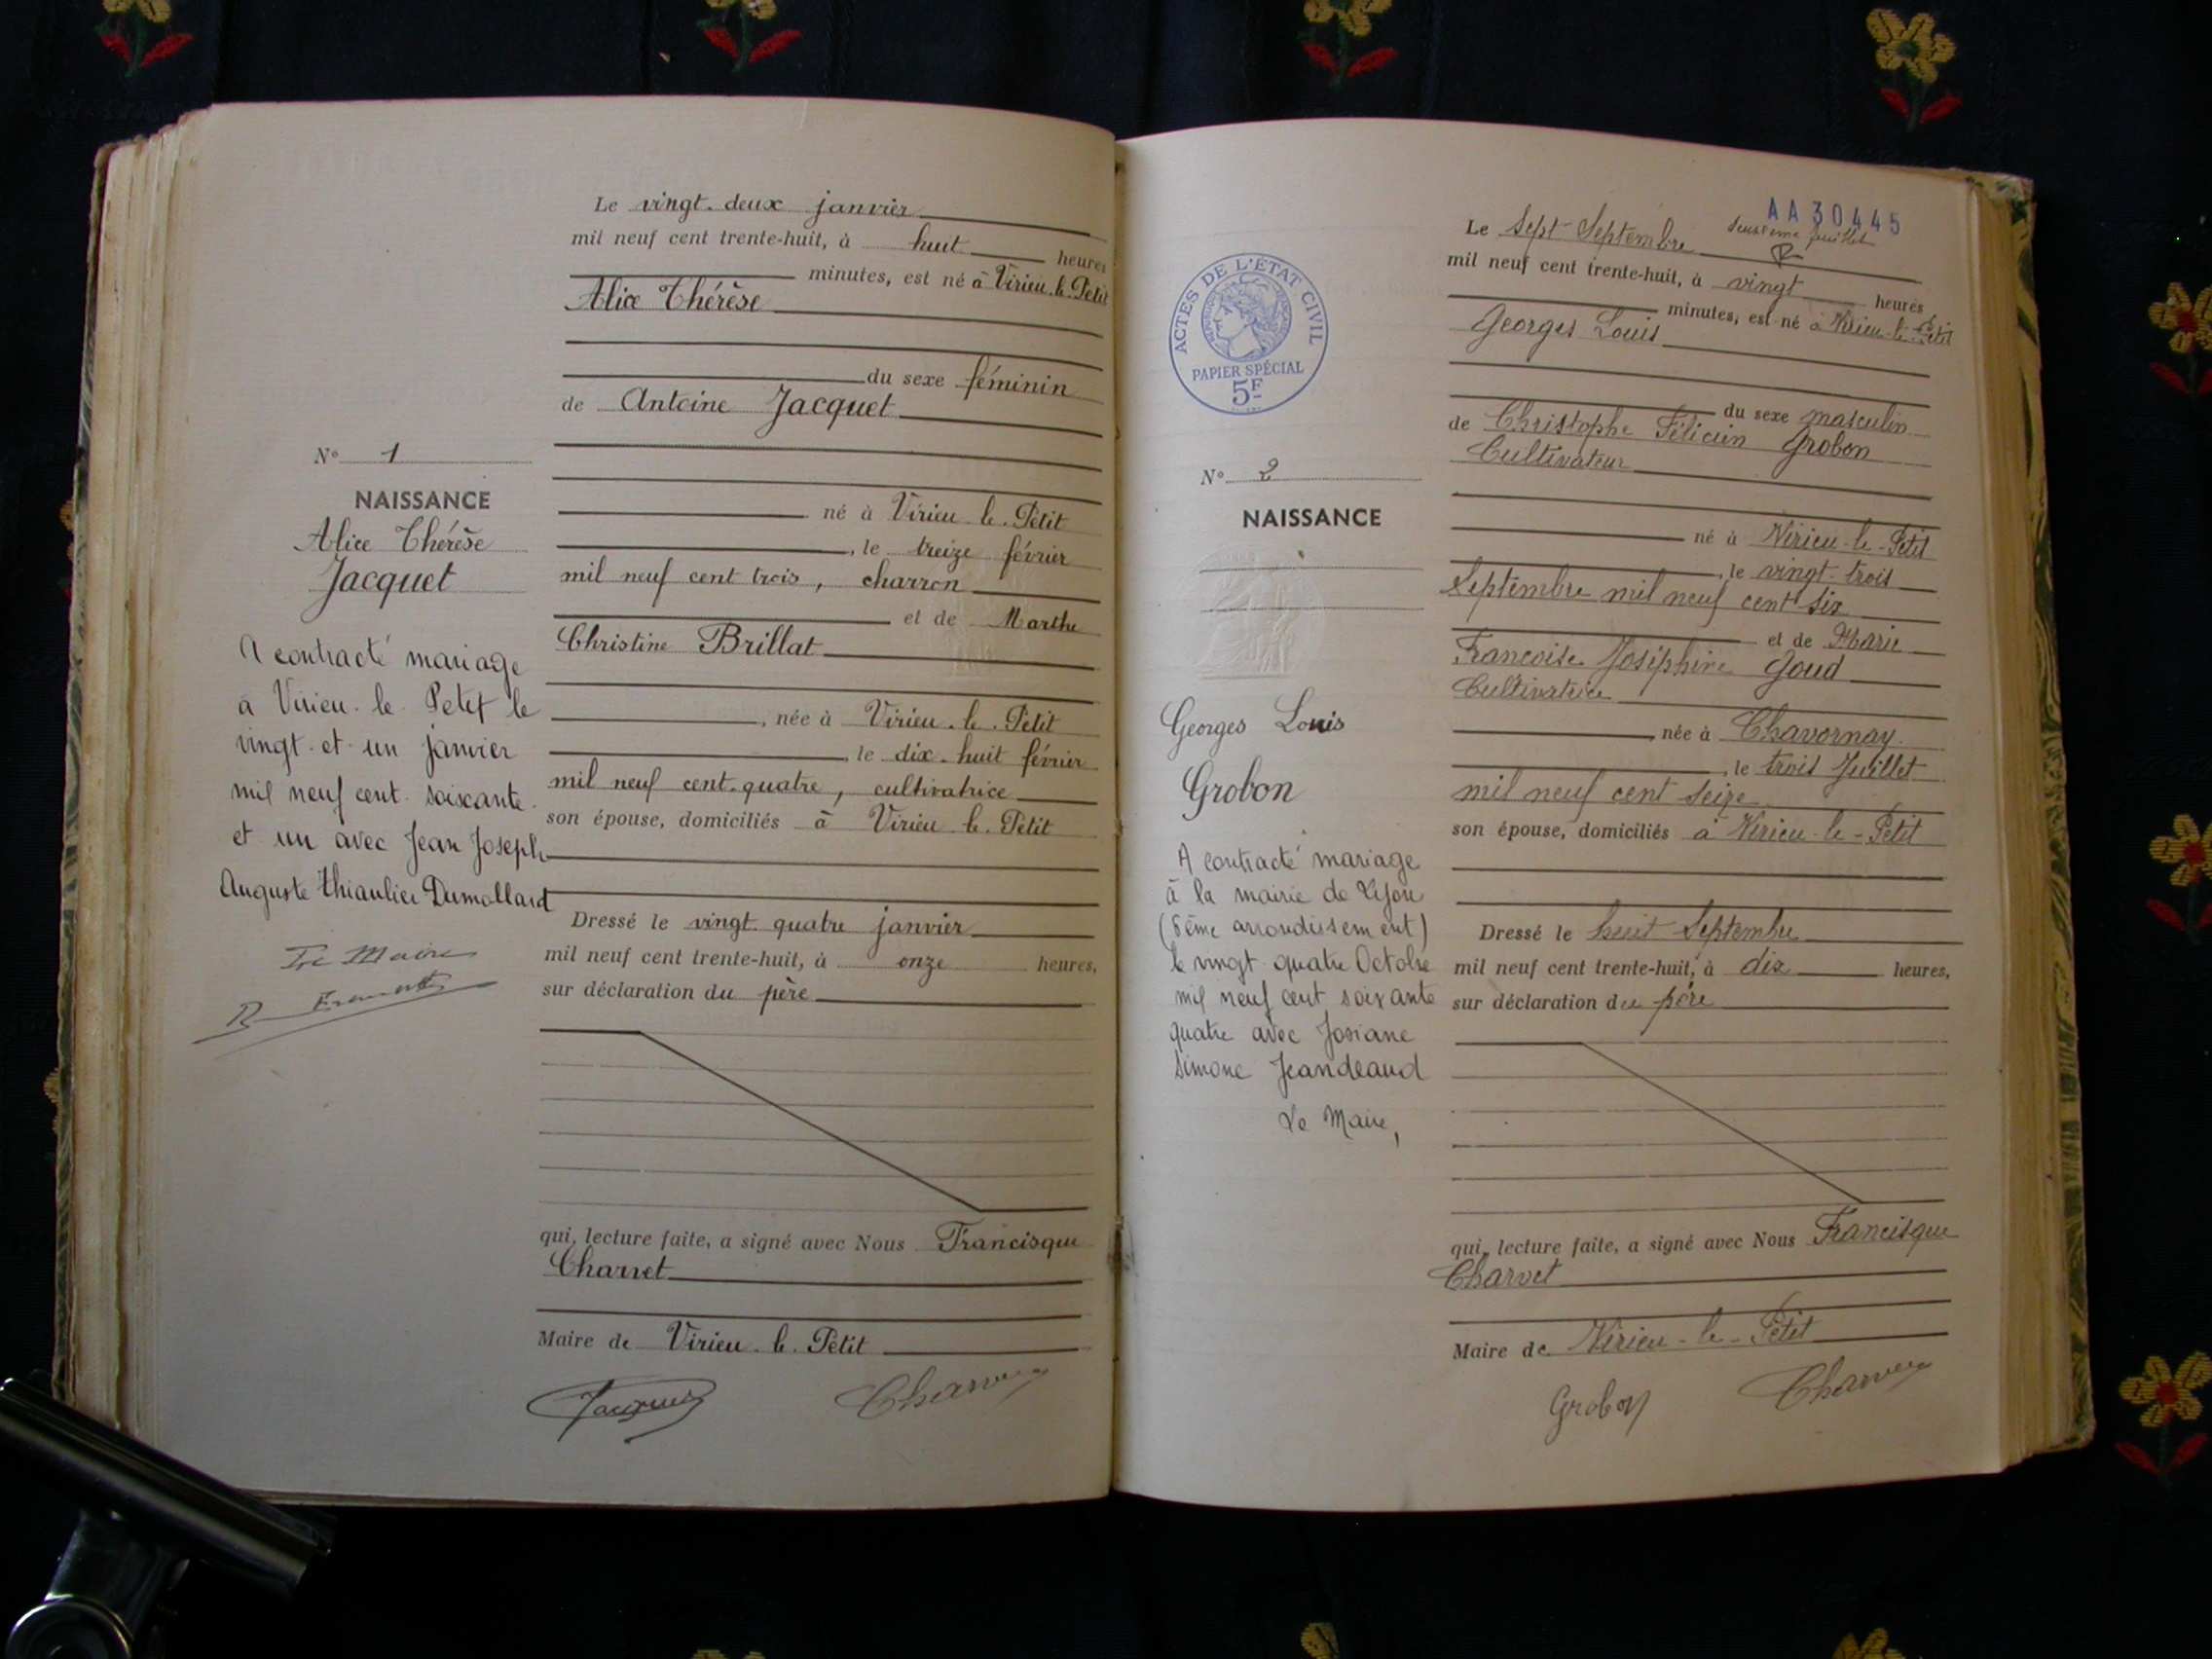 Le vingt-deux janvier
mil neuf cent trente-huit, à huit heures
minutes, est né à Virieu-le-Petit
Alice Thérèse
du sexe féminin
de Antoine Jacquet
N° 1
NAISSANCE
Alice Thérèse
Jacquet
né à Virieu-le-Petit
, le treize février
mil neuf cent trois, charron
et de Marthe
Christine Brillat
, née à Virieu-le-Petit
, le dix-huit février
mil neuf cent quatre, cultivatrice
son épouse, domiciliés à Virieu-le-Petit
A contracté mariage
à Virieu-le-Petit le
vingt-et-un janvier
mil neuf cent soixante
et un avec Jean Joseph
Auguste Thiaulier Dumollard
Le Maire
Dressé le vingt-quatre janvier
mil neuf cent trente-huit, à onze heures,
sur déclaration du père
qui, lecture faite, a signé avec Nous Francisque
Charvet
Maire de Virieu-le-Petit
Jacquet Charvet
AA30445
deuxième feuillet
Le Sept Septembre
mil neuf cent trente-huit, à vingt heures
minutes, est né à Virieu-le-Petit
Georges Louis
ACTES DE L'ÉTAT CIVIL
PAPIER SPÉCIAL
5F
du sexe masculin
de Christophe Félicien Grobon
Cultivateur
N° 2
NAISSANCE
né à Virieu-le-Petit
, le vingt-trois
Septembre mil neuf cent six
et de Marie
Françoise Joséphine Goud
Cultivatrice
née à Chavornay
, le trois Juillet
mil neuf cent seize
son épouse, domiciliés à Virieu-le-Petit
Georges Louis
Grobon
A contracté mariage
à la mairie de Lyon
(6ème arrondissement)
le vingt quatre Octobre
mil neuf cent soixante
quatre avec Josiane
Simone Jeandeaud
Le Maire,
Dressé le huit Septembre
mil neuf cent trente-huit, à dix heures,
sur déclaration du père
qui, lecture faite, a signé avec Nous Francisque
Charvet
Maire de Virieu-le-Petit
Grobon Charvet